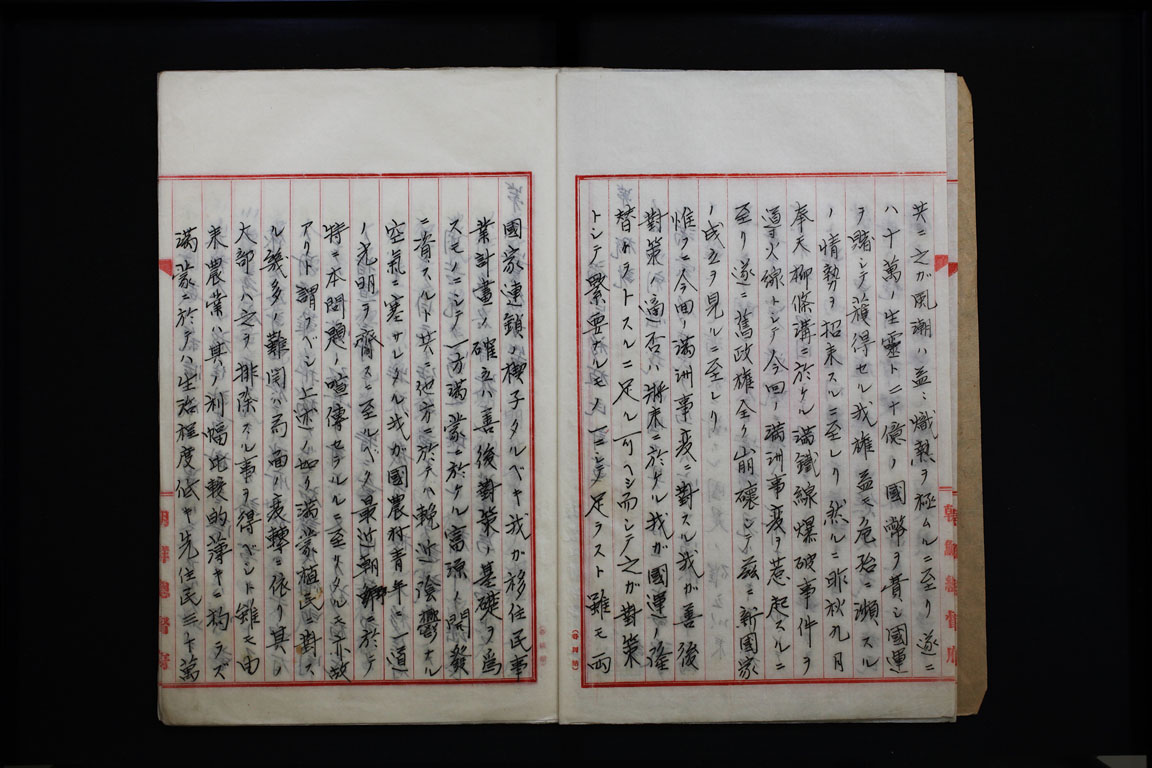 共ニ之ガ風潮ハ益〻熾烈ヲ極ムルニ至リ遂ニ
八十萬ノ生靈ト二十億ノ國幣ヲ費シ國運
ヲ賭シテ獲得セル我雄益モ危殆ニ瀕スル
ノ情勢ヲ招来スルニ至レリ然ルニ昨秋九月
奉天柳條溝ニ於ケル満鐵線爆破事件ヲ
導火線トシテ今回ノ満洲事変ヲ惹起スルニ
至リ遂ニ舊政権全ク崩壊シテ茲ニ新國家
ノ成立ヲ見ルニ至レリ
惟フニ今回ノ満洲事変ニ對スル我ガ善後
對策ノ適否ハ將来ニ於ケル我ガ國運ノ隆
替ヲトスルニ足ル可ヘシ而シテ之ガ對策
トシテ緊要ナルモノ一ニシテ足ラスト雖モ両
國家連鎖ノ楔子タルベキ我ガ移住民事
業計畫ノ確立ハ善後對策ノ基礎ヲ為
スモノニシテ一方満蒙ニ於ケル富源ノ開發
ニ資スルト共ニ他方ニ於テハ輓近陰鬱ナル
空氣ニ塞サレタル我ガ國農村青年ニ一道
ノ光明ヲ齎スニ至ルベク最近朝鮮ニ於テ
特ニ本問題ノ喧傳セラルルニ至リタルモ亦故
アリト謂フベシ上述ノ如ク満蒙植民ニ對ス
ル幾多ノ難関ハ局面ノ変轉ニ依リ其ノ
大部ハ之ヲ排除スル事ヲ得ベシト雖モ由
来農業ハ其ノ利幅比較的薄キニ拘ラズ
満蒙ニ於テハ生活程度低キ先住民三千萬
朝鮮總督府
朝鮮總督府